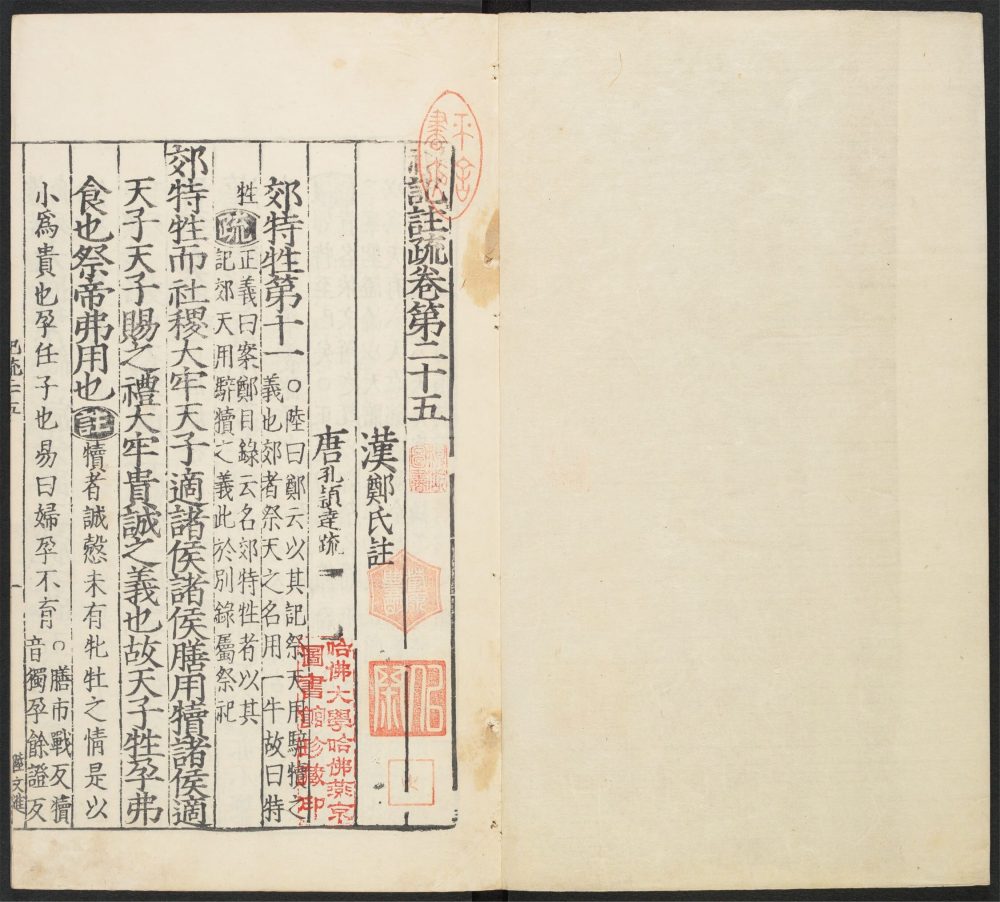 禮記註疏卷第二十五
漢鄭氏註
唐孔穎達疏
郊特牲第十一
○陸曰鄭云以其記祭天用騂犢之
義也郊者祭天之名用一牛故曰特
牲
疏
正義曰案鄭目錄云名郊特牲者以其
記郊天用騂犢之義此於別錄屬祭祀
郊特牲而社稷大牢天子適諸侯諸侯膳用犢諸侯適
天子天子賜之禮大牢貴誠之義也故天子牲孕弗
食也祭帝弗用也
註
犢者誠慤未有牝牡之情是以
小爲貴也孕任子也易曰婦孕不育
○膳市戰反犢
音獨孕餘證反
記疏二十五
一
陸文進
哈佛大學哈佛燕京
圖書館珍藏印